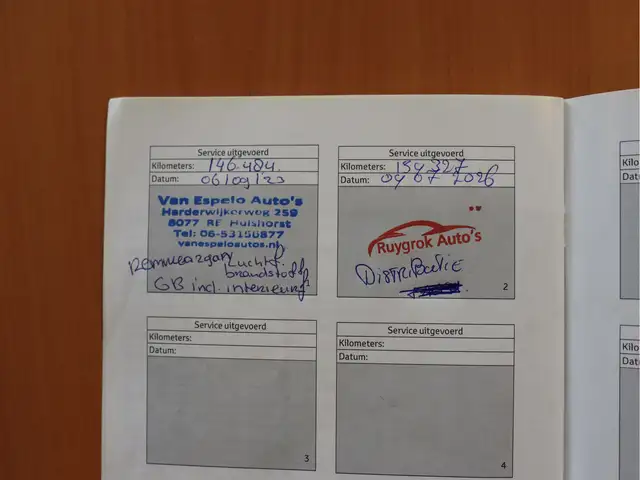 Service uitgevoerd
Kilometers: 146.484.
Datum: 06/09/23
Van Espelo Auto's
Harderwijkerweg 259
8077 RE Hulshorst
Tel: 06-53150877
vanespeloautos.nl
Luchtf.
brandstoff
GB incl. interieurf
Service uitgevoerd
Kilometers: 154.327
Datum: 09 07 2026
Ruygrok Auto's
DISTRIBUTIE
2
Service uitgevoerd
Kilometers:
Datum:
3
Service uitgevoerd
Kilometers:
Datum:
4
Kilo
Kilo